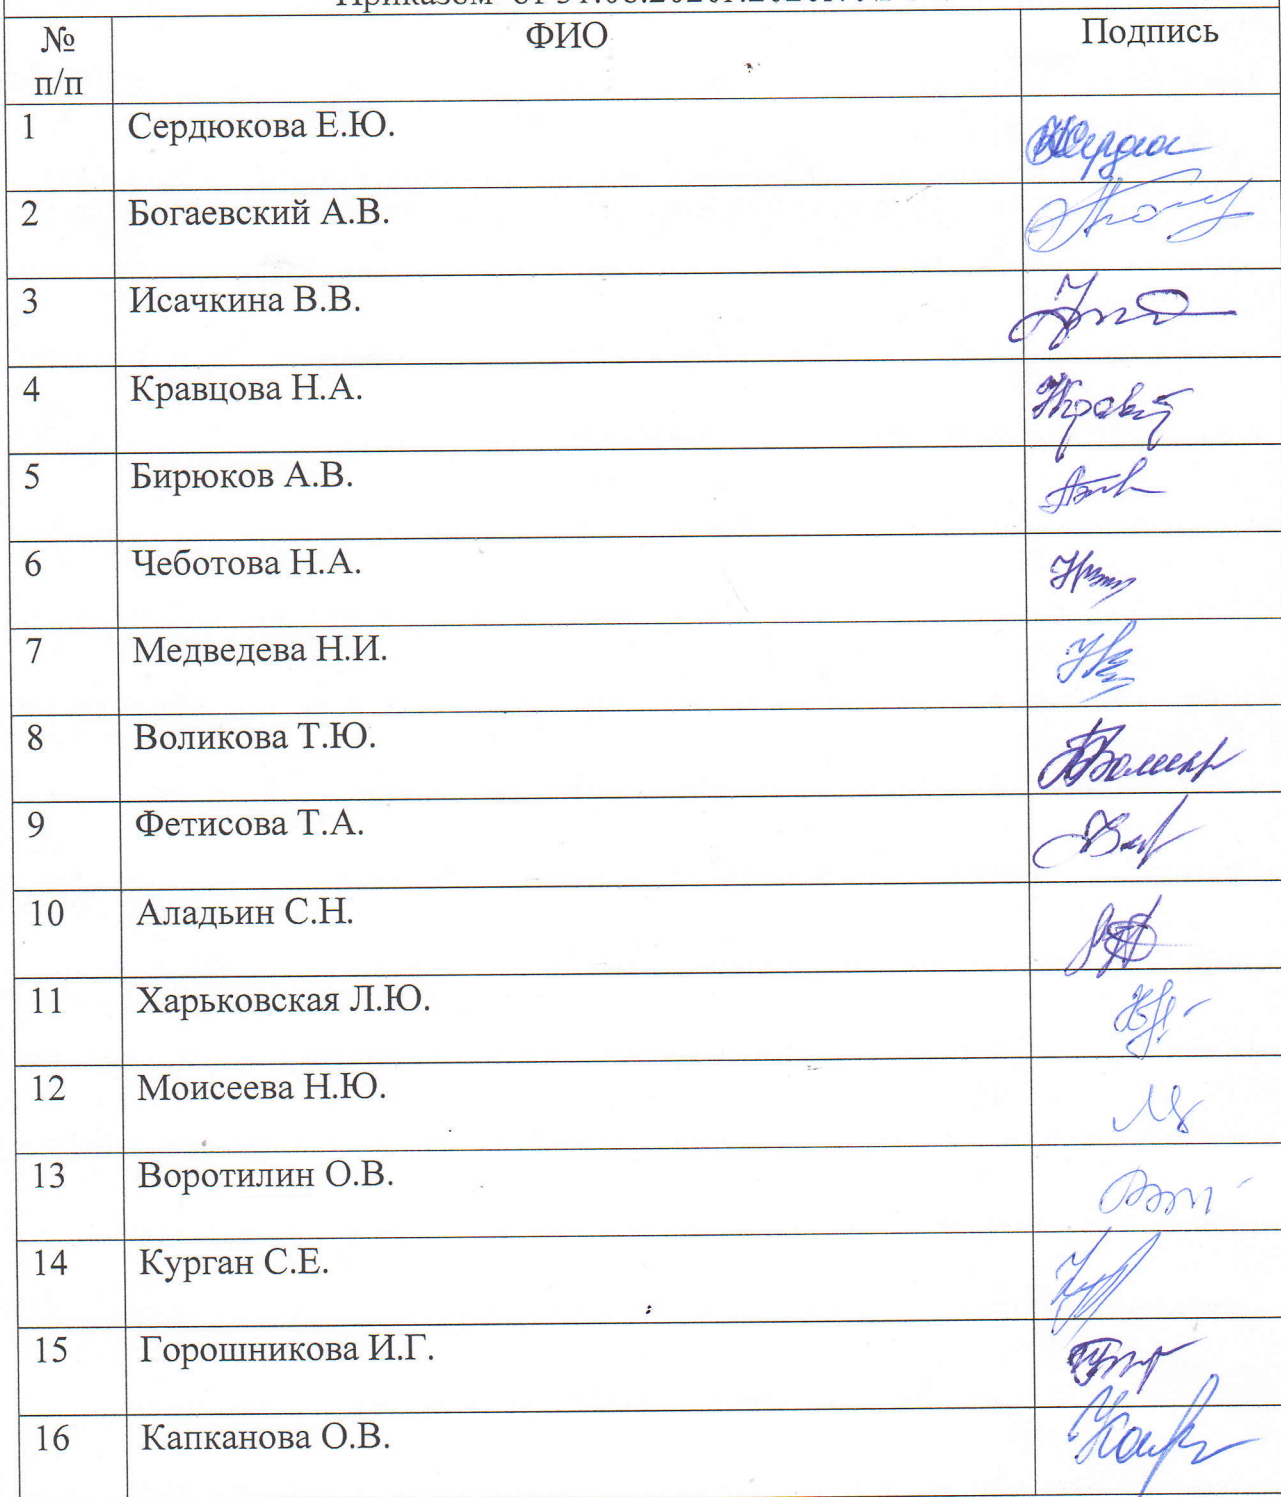 № ФИО Подпись
п/п
1 Сердюкова Е.Ю.
2 Богаевский А.В.
3 Исачкина В.В.
4 Кравцова Н.А.
5 Бирюков А.В.
6 Чеботова Н.А.
7 Медведева Н.И.
8 Воликова Т.Ю.
9 Фетисова Т.А.
10 Аладьин С.Н.
11 Харьковская Л.Ю.
12 Моисеева Н.Ю.
13 Воротилин О.В.
14 Курган С.Е.
15 Горошникова И.Г.
16 Капканова О.В.